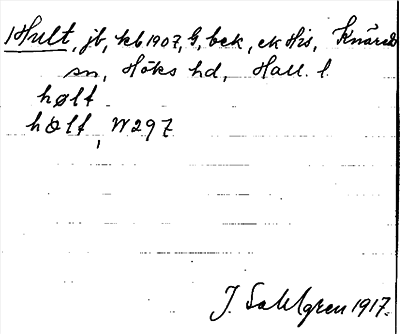 1 Hult, jb, kb 1907, G, bek, ek His, Knäreds
sn, Höks hd, Hall. l.
hølt
hølt, W297
J. Sahlgren 1917.